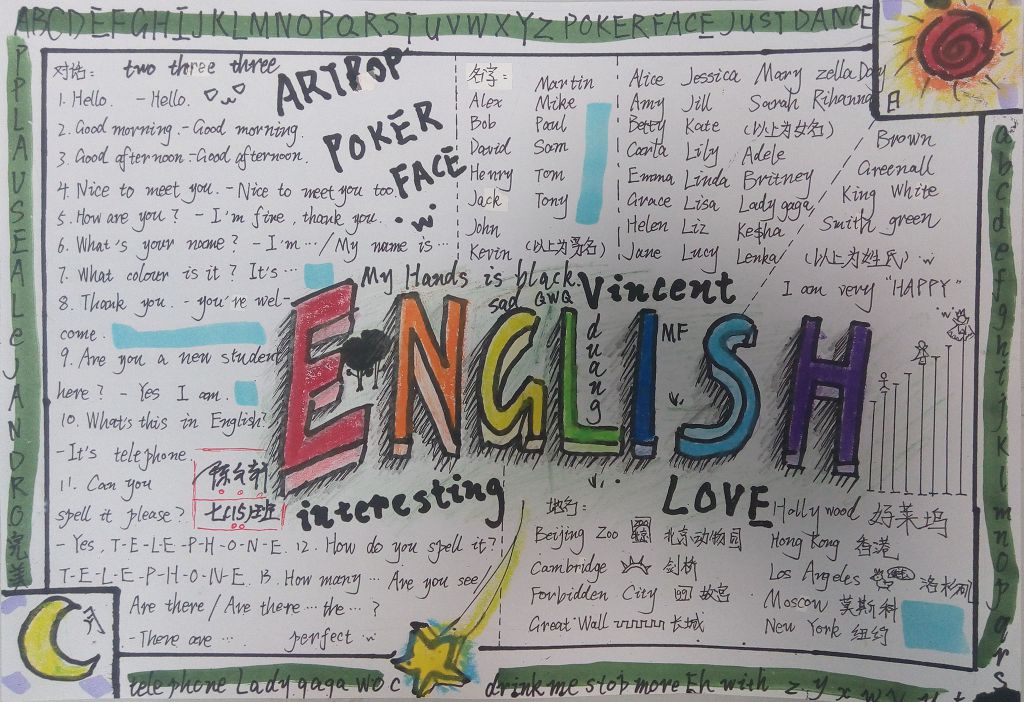 ABCDEFGHIJKLMNOPQRSTUVWXYZ POKERFACE JUST DANCE
PPLAUSEALeJANDRO完美
对话: two three three
1. Hello. - Hello.
2. Good morning. - Good morning.
3. Good afternoon. - Good afternoon.
4. Nice to meet you. - Nice to meet you too.
5. How are you? - I'm fine, thank you.
6. What's your name? - I'm ··· / My name is ···
7. What colour is it? It's ···
8. Thank you. - you're wel-
come.
9. Are you a new student
here? - Yes I am.
10. What's this in English?
- It's telephone.
11. Can you
spell it please?
- Yes, T-E-L-E-P-H-O-N-E. 12. How do you spell it?
T-E-L-E-P-H-O-N-E. 13. How many ··· Are you see/
Are there / Are there ··· the ··· ?
- There are ··· perfect
七(15)班
ARTPOP
POKER
FACE
名字:
Alex
Bob
David
Henry
Jack
John
Kevin
Martin
Mike
Paul
Sam
Tom
Tony
(以上为男名)
Alice Jessica Mary zella Day
Amy Jill Sarah Rihanna
Betty Kate (以上为女名)
Carla Lily Adele
Emma Linda Britney
Grace Lisa Lady gaga
Helen Liz Ke$ha
Jane Lucy Lenka
日
Brown
Greenall
King White
Smith green
(以上为姓氏)
I am very "HAPPY"
My Hands is black.
sad QWQ
Vincent
duang
MF
ENGLISH
interesting
LOVE
地名:
Beijing Zoo ZOO 北京动物园
Cambridge 剑桥
Forbidden City 故宫
Great Wall 长城
Hollywood 好莱坞
Hong Kong 香港
Los Angeles 洛杉矶
Moscow 莫斯科
New York 纽约
月
telephone Lady gaga wo c
drink me stop more Eh with z y x w v u t
abcdefghijklmnopqrs